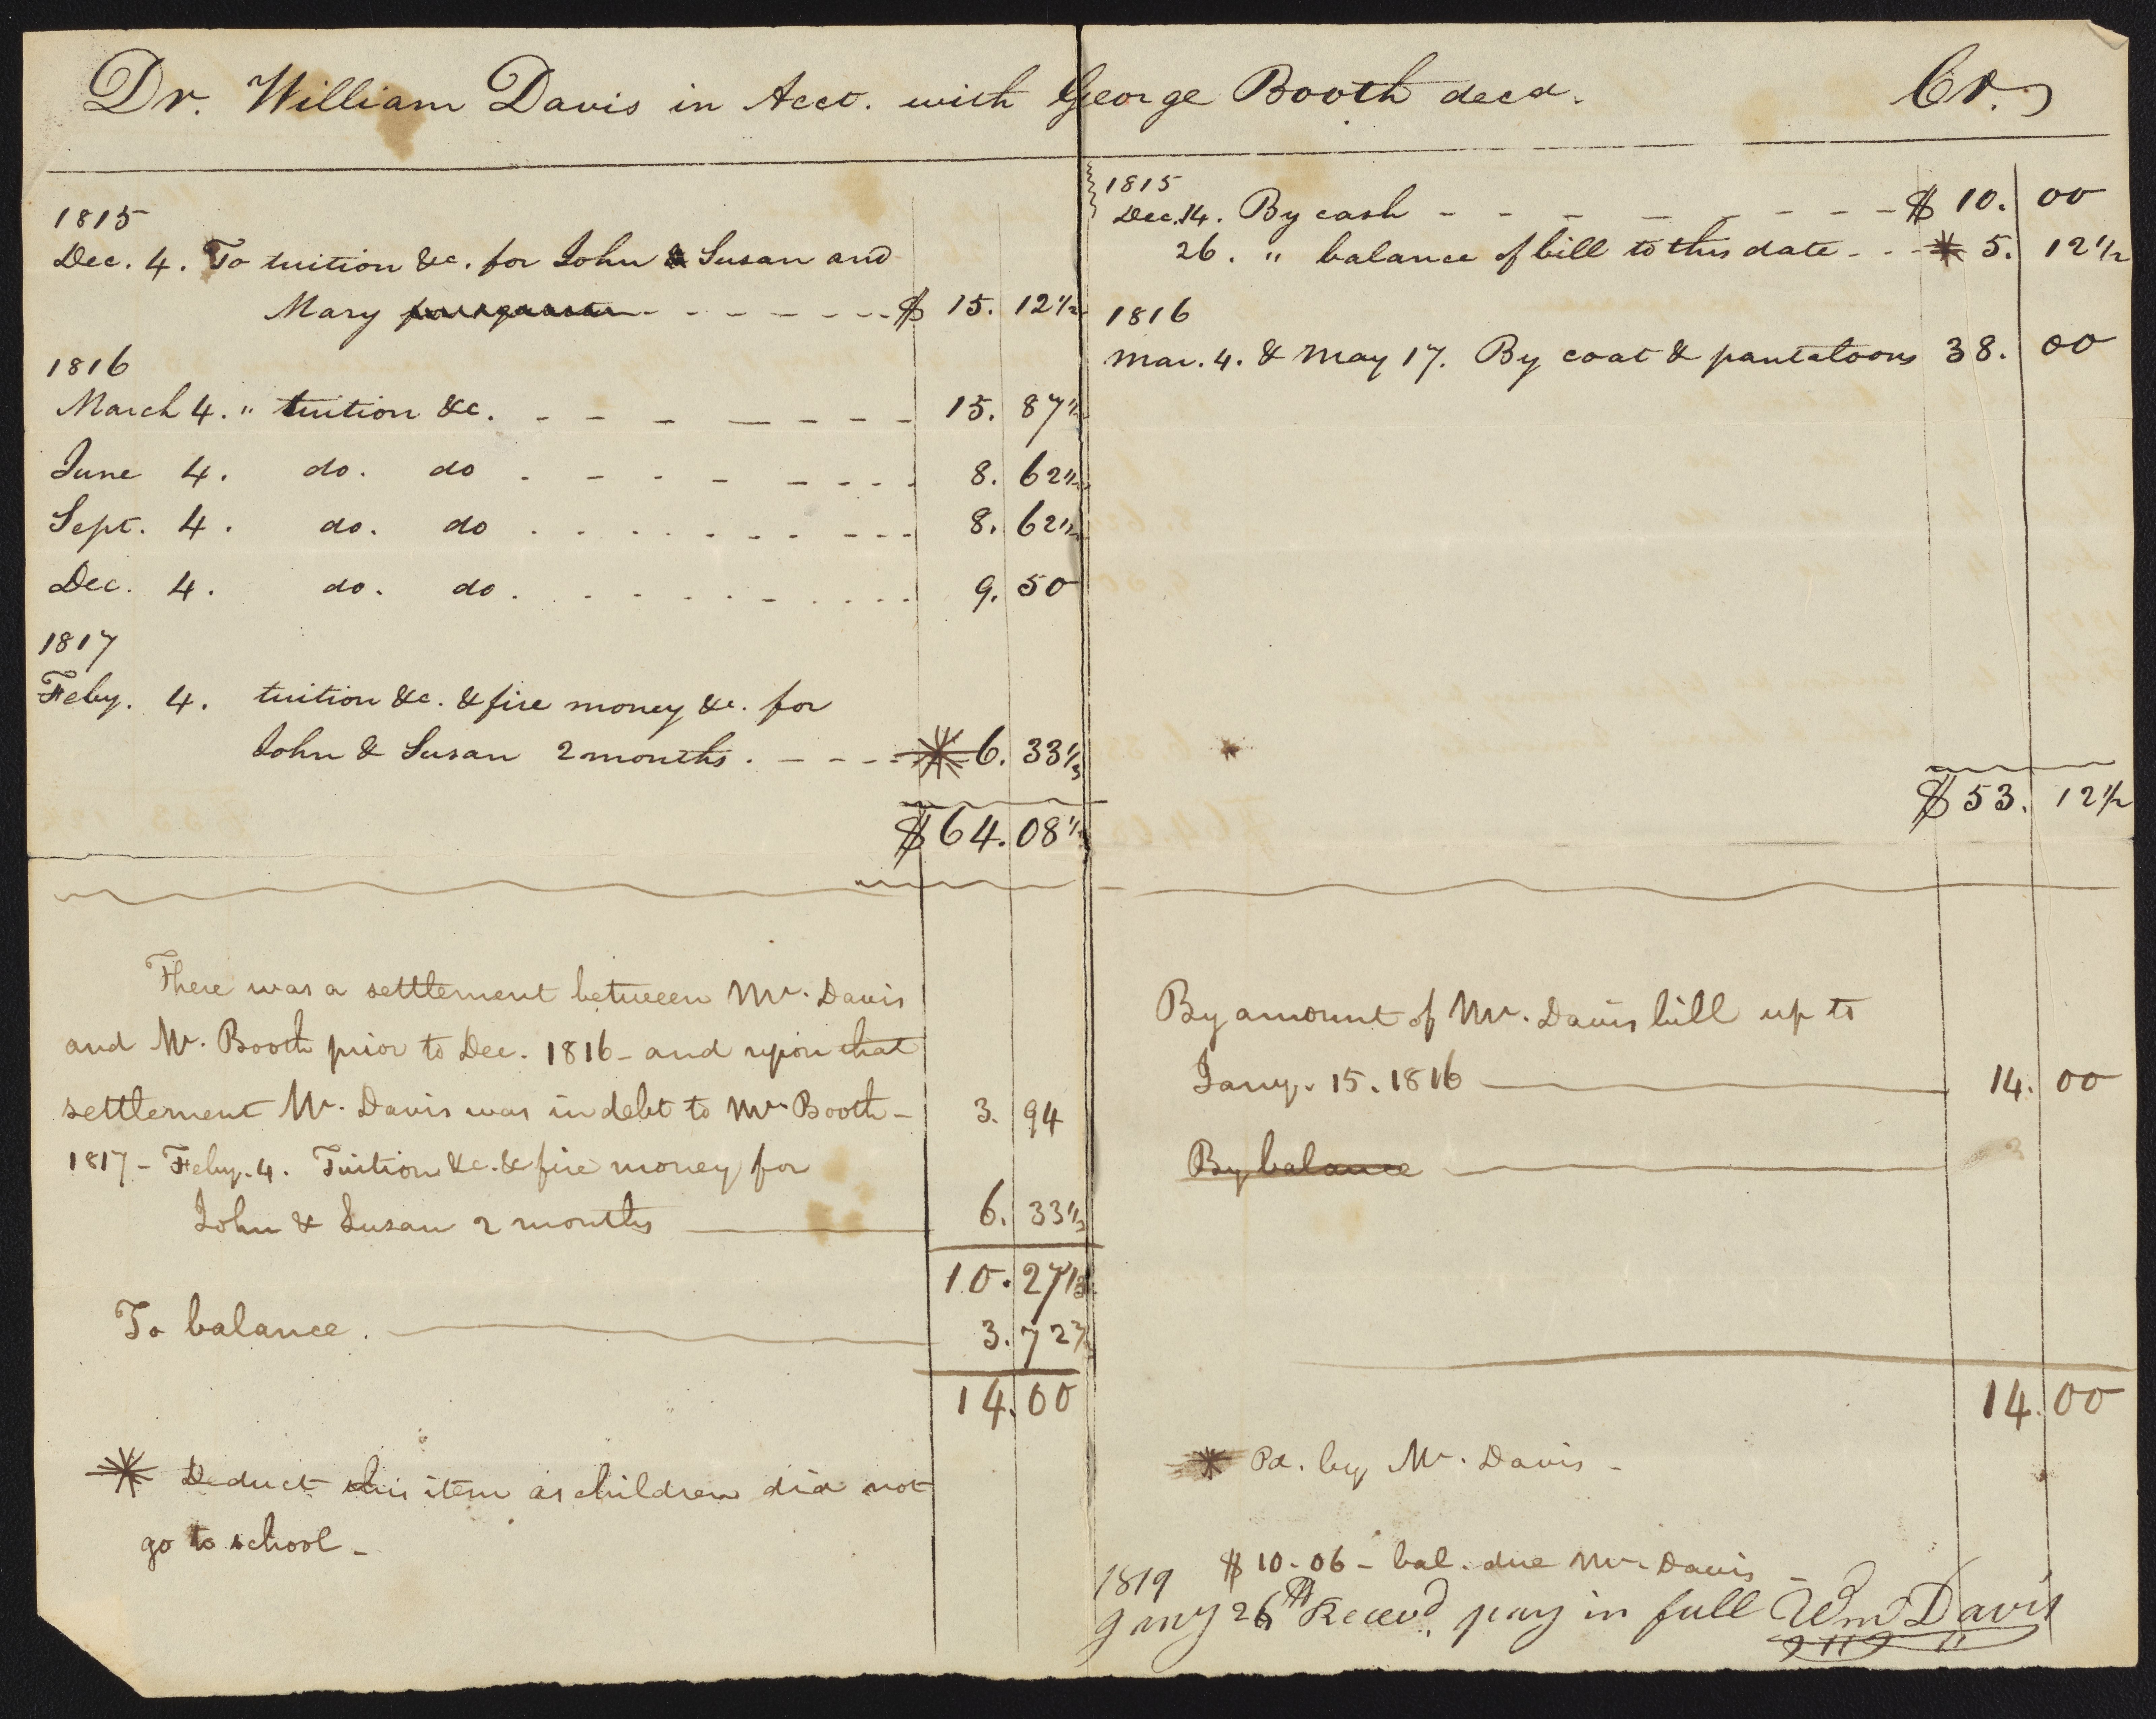 Dr. William Davis in Acct. with George Booth decd. Cr.
1815
Dec. 4. To tuition &c. for John & Susan and
Mary - - - - - - - $ 15. 12 1/2
1816
March 4. " tuition &c. - - - - - - - - 15. 87 1/2
June 4. do. do - - - - - - - - 8. 62 1/2
Sept. 4. do. do . . . . . . . - - - 8. 62 1/2
Dec. 4. do. do . . . . . . . . . . 9. 50
1817
Feby. 4. tuition &c. & fire money &c. for
John & Susan 2 months. - - - - * 6. 33 1/3
$ 64. 08 1/3
There was a settlement between Mr. Davis
and Mr. Booth prior to Dec. 1816 - and upon that
settlement Mr. Davis was in debt to Mr. Booth - 3. 94
1817 - Feby. 4. Tuition &c. & fire money for
John & Susan 2 months 6. 33 1/3
10. 27 1/3
To balance. 3. 72 2/3
14. 00
* Deduct this item as children did not
go to school -
1815
Dec. 14. By cash - - - - - - - - - $ 10. 00
26. " balance of bill to this date - - - * 5. 12 1/2
1816
Mar. 4. & May 17. By coat & pantaloons 38. 00
*
$ 53. 12 1/2
By amount of Mr. Davis bill up to
Jany. 15. 1816 14. 00
By balance
14. 00
* Pd. by Mr. Davis -
$ 10.06 - bal. due Mr. Davis -
1819
Jany 26th Recevd. pay in full Wm Davis